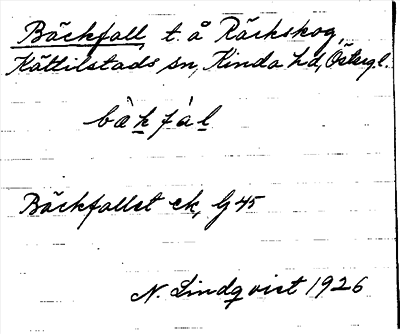 Bäckfall, t. å Räckskog,
Kättilstads sn, Kinda hd, Östergl.
bàkfàl
Bäckfallet ek, G 45
N. Lindqvist 1926